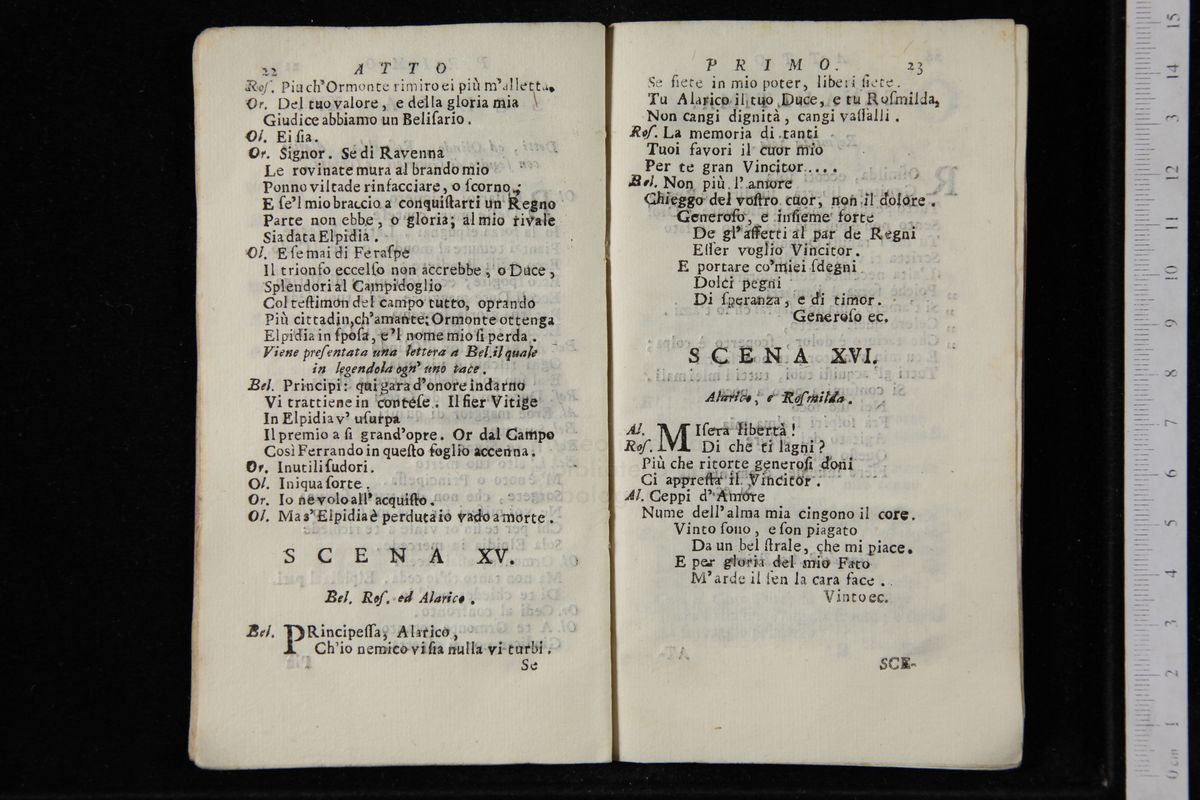 22 ATTO
Roſ. Piu ch'Ormonte rimiro ei più m'alletta.
Or. Del tuo valore, e della gloria mia
Giudice abbiamo un Beliſario.
Ol. Ei ſia.
Or. Signor. Se di Ravenna
Le rovinate mura al brando mio
Ponno viltade rinfacciare, o ſcorno;
E ſe'l mio braccio a conquiſtarti un Regno
Parte non ebbe, o gloria; al mio rivale
Sia data Elpidia.
Ol. E ſe mai di Feraſpe
Il trionfo eccelſo non accrebbe, o Duce,
Splendori al Campidoglio
Col teſtimon del campo tutto, oprando
Più cittadin, ch'amante; Ormonte ottenga
Elpidia in ſpoſa, e'l nome mio ſi perda.
Viene preſentata una lettera a Bel. il quale
in legendola ogn' uno tace.
Bel. Principi: qui gara d'onore indarno
Vi trattiene in conteſe. Il fier Vitige
In Elpidia v' uſurpa
Il premio a ſi grand'opre. Or dal Campo
Così Ferrando in queſto foglio accenna.
Or. Inutili ſudori.
Ol. Iniqua ſorte.
Or. Io ne volo all' acquiſto.
Ol. Ma s' Elpidia è perduta io vado a morte.
SCENA XV.
Bel. Roſ. ed Alarico.
Bel. PRincipeſſa, Alarico,
Ch'io nemico vi ſia nulla vi turbi.
Se
PRIMO. 23
Se ſiete in mio poter, liberi ſiete.
Tu Alarico il tuo Duce, e tu Roſmilda,
Non cangi dignità, cangi vaſſalli.
Roſ. La memoria di tanti
Tuoi favori il cuor mio
Per te gran Vincitor....
Bel. Non più l' amore
Chieggo del voſtro cuor, non il dolore.
Generoſo, e inſieme forte
De gl' affetti al par de Regni
Eſſer voglio Vincitor.
E portare co'miei ſdegni
Dolci pegni
Di ſperanza, e di timor.
Generoſo ec.
SCENA XVI.
Alarico, e Roſmilda.
Al. MIſera libertà!
Roſ. Di che ti lagni?
Più che ritorte generoſi doni
Ci appreſta il Vincitor.
Al. Ceppi d' Amore
Nume dell' alma mia cingono il core.
Vinto ſono, e ſon piagato
Da un bel ſtrale, che mi piace.
E per gloria del mio Fato
M' arde il ſen la cara face.
Vinto ec.
SCE-
0 cm 1 2 3 4 5 6 7 8 9 10 11 12 13 14 15